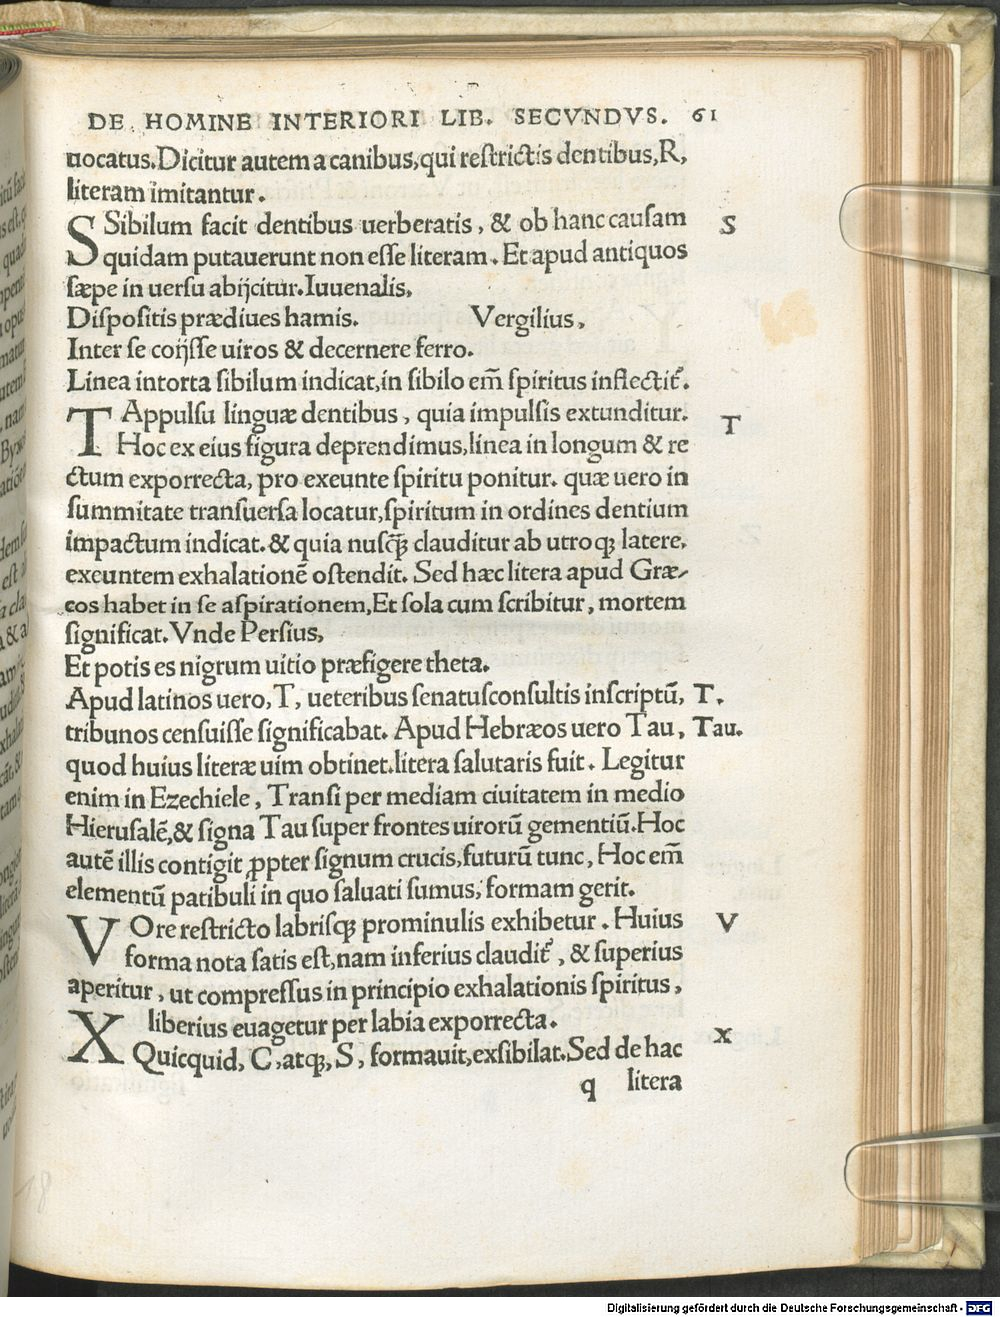 DE HOMINE INTERIORI LIB. SECVNDVS. 61
uocatus. Dicitur autem a canibus, qui reſtrictis dentibus, R,
literam imitantur.
S Sibilum facit dentibus uerberatis, & ob hanc cauſam
S
quidam putauerunt non eſſe literam. Et apud antiquos
ſæpe in uerſu abijcitur. Iuuenalis,
Diſpoſitis prædiues hamis. Vergilius,
Inter ſe coijſſe uiros & decernere ferro.
Linea intorta ſibilum indicat, in ſibilo em̄ ſpiritus inflectit᷑.
T Appulſu linguæ dentibus, quia impulſis extunditur.
T
Hoc ex eius figura deprendimus, linea in longum & re
ctum exporrecta, pro exeunte ſpiritu ponitur. quæ uero in
ſummitate tranſuerſa locatur, ſpiritum in ordines dentium
impactum indicat. & quia nuſq̄ꝫ clauditur ab utroqꝫ latere,
exeuntem exhalationē oſtendit. Sed hæc litera apud Græ-
cos habet in ſe aſpirationem, Et ſola cum ſcribitur, mortem
ſignificat. Vnde Perſius,
Et potis es nigrum uitio præfigere theta.
Apud latinos uero, T, ueteribus ſenatuſconſultis inſcriptū, T.
tribunos cenſuiſſe ſignificabat. Apud Hebræos uero Tau, Tau.
quod huius literæ uim obtinet. litera ſalutaris fuit. Legitur
enim in Ezechiele, Tranſi per mediam ciuitatem in medio
Hieruſalē, & ſigna Tau ſuper frontes uirorū gementiū. Hoc
autē illis contigit ꝓpter ſignum crucis, futurū tunc, Hoc em̄
elementū patibuli in quo ſaluati ſumus, formam gerit.
V Ore reſtricto labriſq̄ꝫ prominulis exhibetur. Huius
V
forma nota ſatis eſt, nam inferius claudit᷑, & ſuperius
aperitur, ut compreſſus in principio exhalationis ſpiritus,
liberius euagetur per labia exporrecta.
X Quicquid, C, atqꝫ, S, formauit, exſibilat. Sed de hac
X
q litera
Digitalisierung gefördert durch die Deutsche Forschungsgemeinschaft - DFG